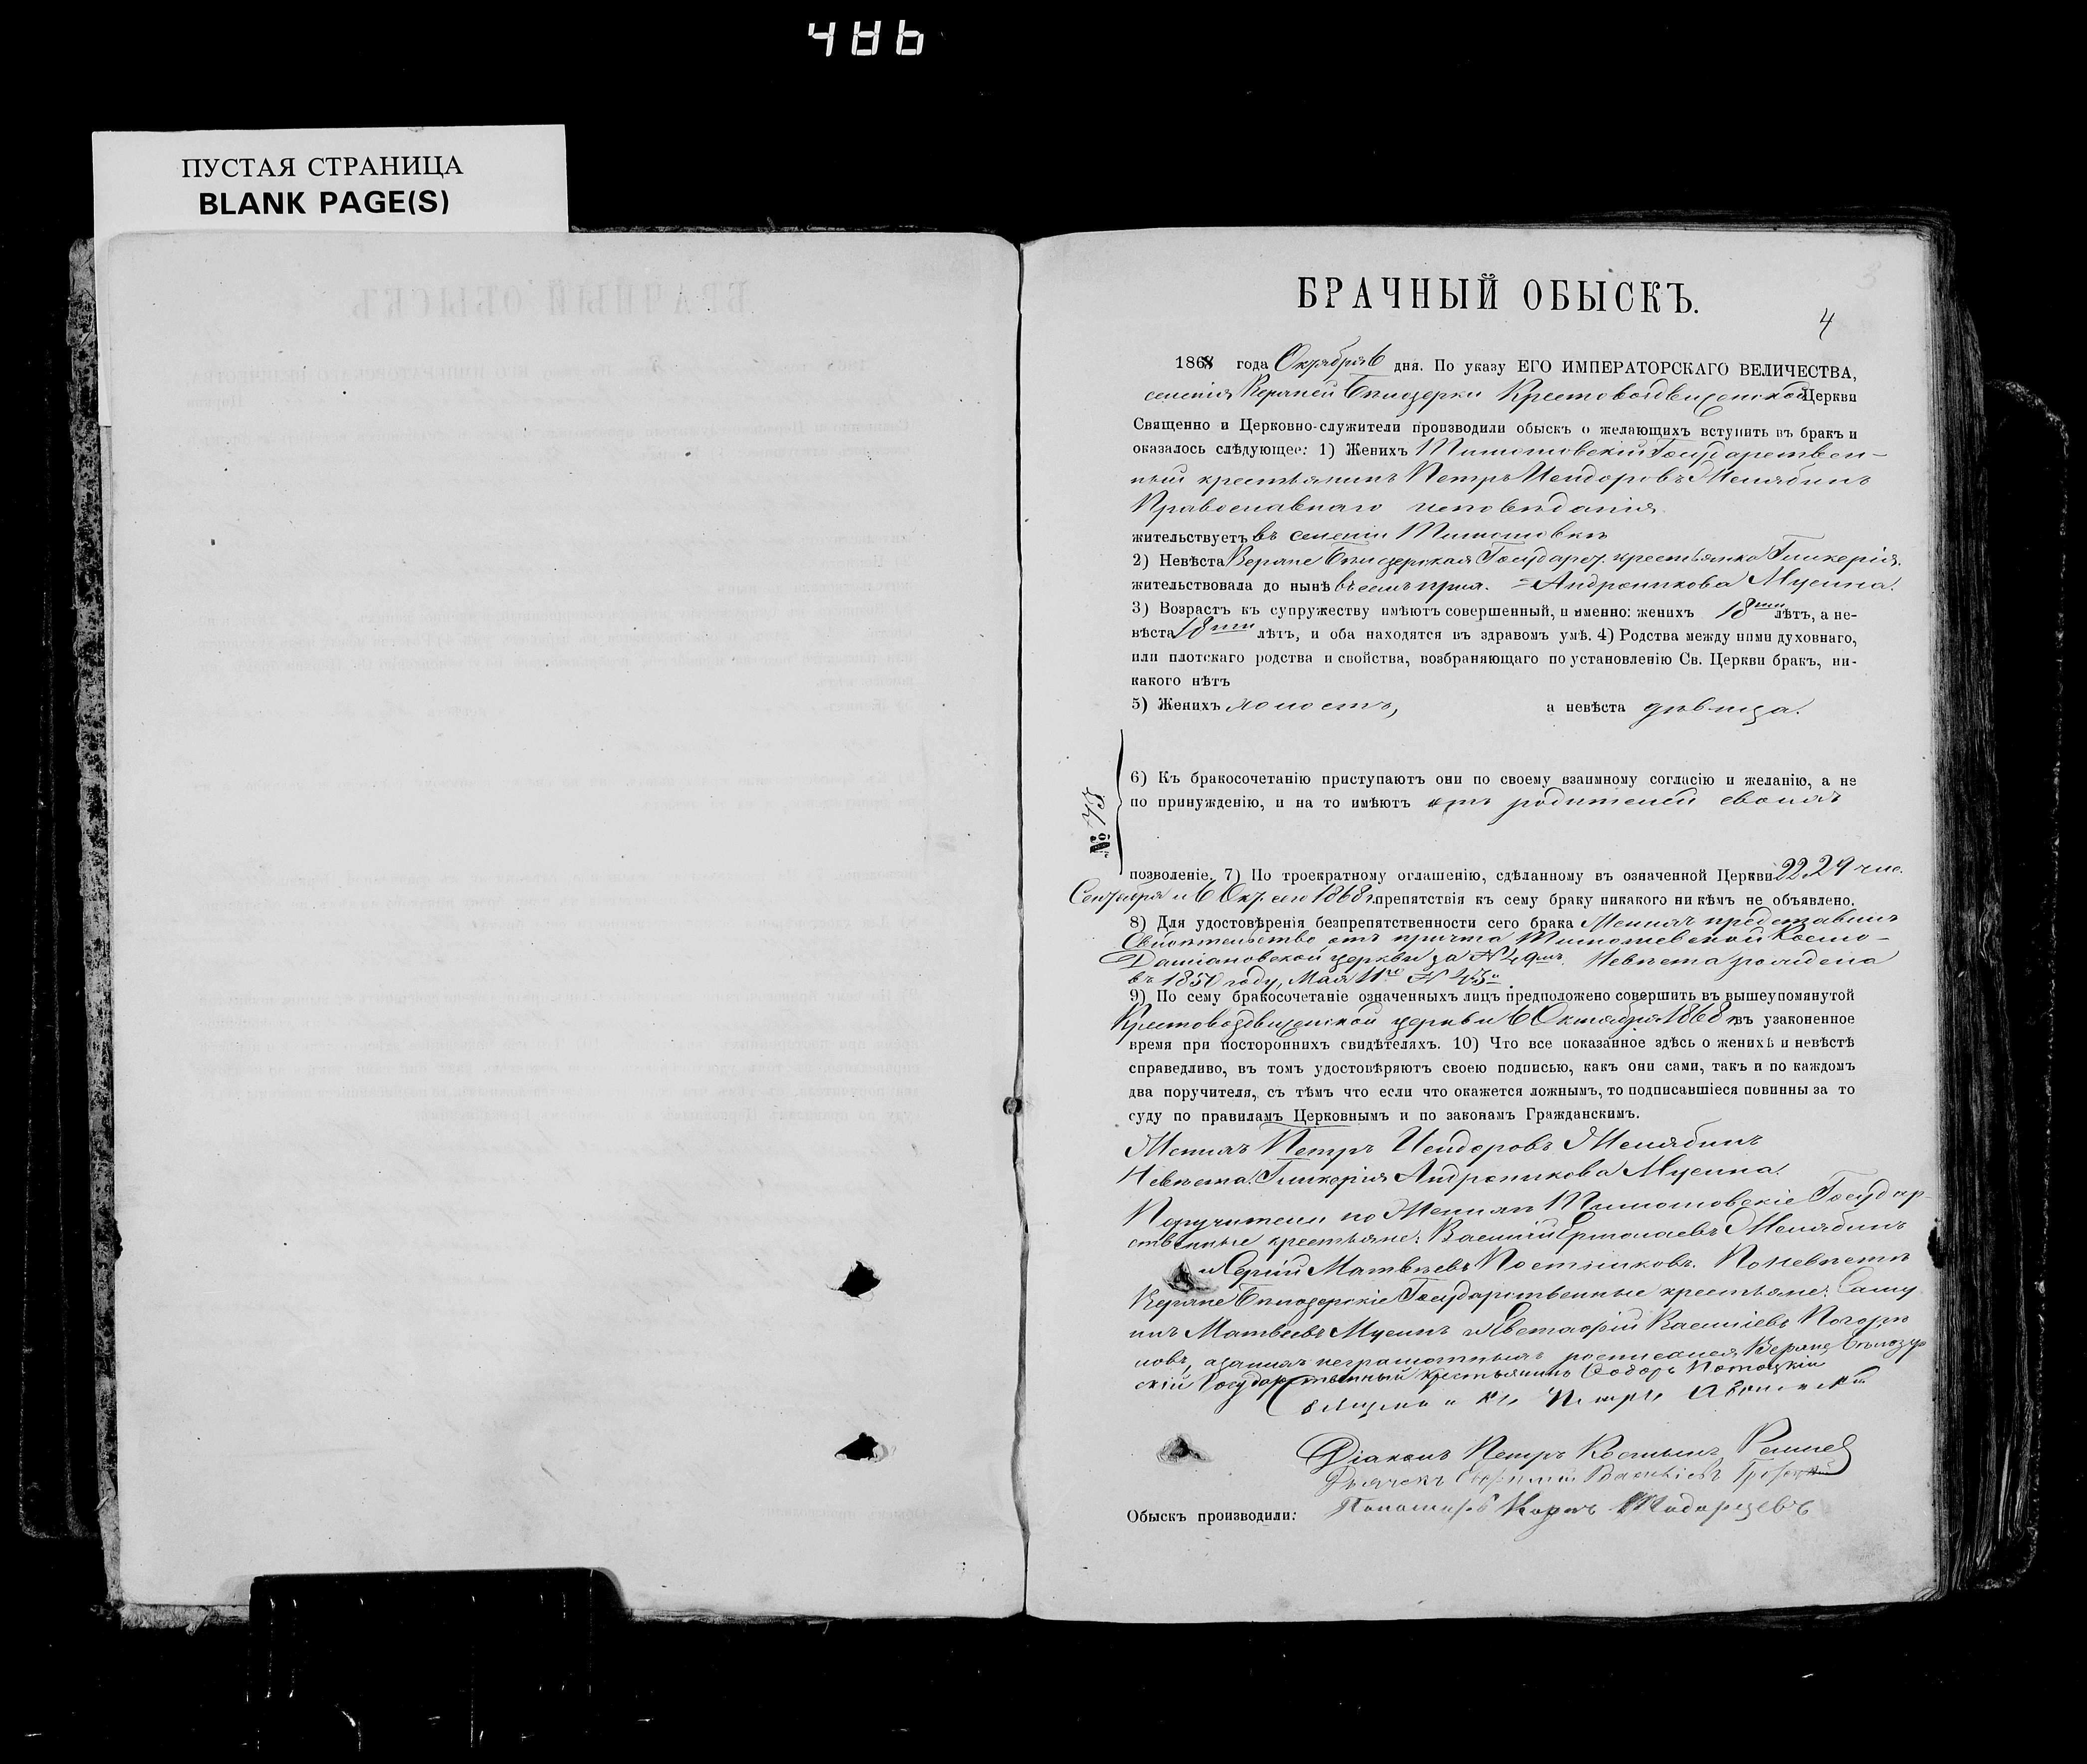 486
ПУСТАЯ СТРАНИЦА
BLANK PAGE(S)
БРАЧНЫЙ ОБЫСКЪ.
4
1868 года Октября 6 дня. По указу ЕГО ИМПЕРАТОРСКАГО ВЕЛИЧЕСТВА,
селенія Верхней Крестовоздвиженской Церкви
Священно и Церковно-служители производили обыскъ о желающихъ вступить въ бракъ и
оказалось слѣдующее: 1) Женихъ Государствен-
ный крестьянинъ Петръ Исидоровъ
Православнаго исповѣданія
жительствуетъ въ селеніи
2) Невѣста Государст. крестьянка Гликерія
жительствовала до нынѣ въ семъ прих. = Андроникова Мусина.
3) Возрастъ къ супружеству имѣютъ совершенный, и именно: женихъ 18ти лѣтъ, а не-
вѣста 18ти лѣтъ, и оба находятся въ здравомъ умѣ. 4) Родства между ними духовнаго,
или плотскаго родства и свойства, возбраняющаго по установленію Св. Церкви бракъ, ни-
какого нѣтъ
5) Женихъ холостъ, а невѣста дѣвица.
6) Къ бракосочетанію приступаютъ они по своему взаимному согласію и желанію, а не
по принужденію, и на то имѣютъ отъ родителей своихъ
№ 73.
позволеніе. 7) По троекратному оглашенію, сдѣланному въ означенной Церкви 22. 29 чис.
Сентября и 6 Окт. сего 1868 г. препятствія къ сему браку никакого ни кѣмъ не объявлено.
8) Для удостовѣренія безпрепятственности сего брака Женихъ представилъ
Свидѣтельство отъ причта Космо-
Даміановской церкви за № 49мъ. Невѣста рождена
въ 1850 году, Мая 11го № 43
9) По сему бракосочетаніе означенныхъ лицъ предположено совершить въ вышеупомянутой
Крестовоздвиженской церкви 6 Октября 1868 г. въ узаконенное
время при постороннихъ свидѣтеляхъ. 10) Что все показанное здѣсь о женихѣ и невѣстѣ
справедливо, въ томъ удостовѣряютъ своею подписью, какъ они сами, такъ и по каждомъ
два поручителя, съ тѣмъ что если что окажется ложнымъ, то подписавшіеся повинны за то
суду по правиламъ Церковнымъ и по законамъ Гражданскимъ.
Женихъ Петръ Исидоровъ
Невѣста Гликерія Андроникова Мусина.
Поручители по Женихѣ Государ-
ственные крестьяне: Василій Ермолаевъ
и Сергій Матвѣевъ Постниковъ. По невѣстѣ
Государственные крестьяне:
Матвѣевъ Мусинъ и Евстафій Васильевъ
а за нихъ неграмотныхъ росписался
Государственный крестьянинъ Ѳодоръ
Петръ
Діаконъ Петръ
Дьячекъ
Пономарь
Обыскъ производили: